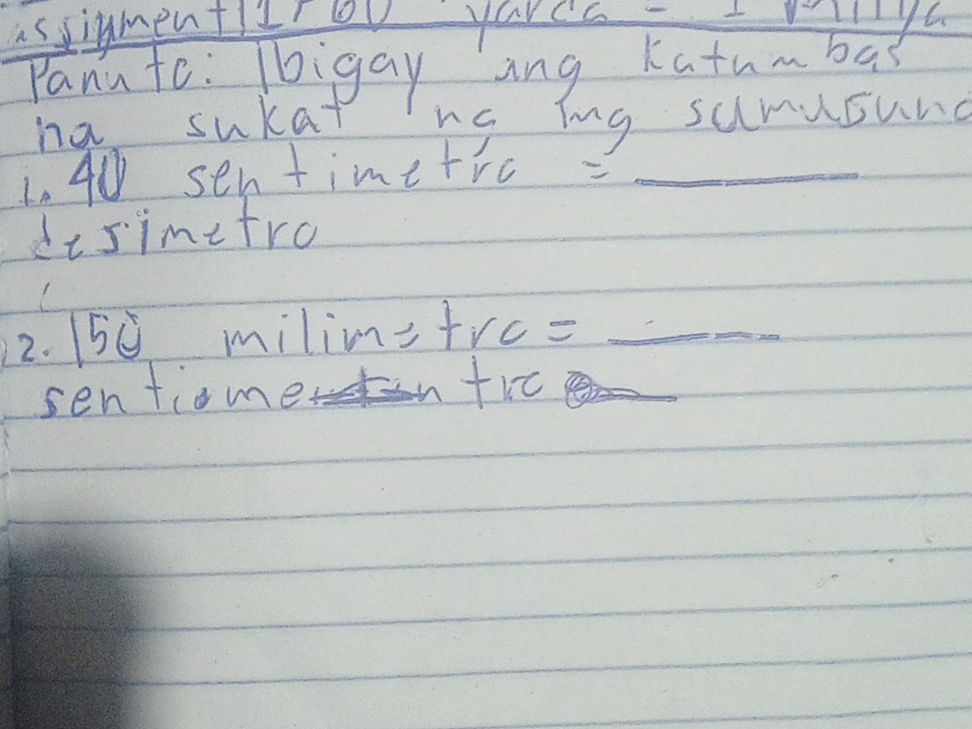 assignment 1760 yarda = 1 milya
Panuto: Ibigay ang katumbas
na sukat ng mg sumusuno
1. 40 sentimetro = ________
desimetro
2. 150 milimetro = ________
sentiometro